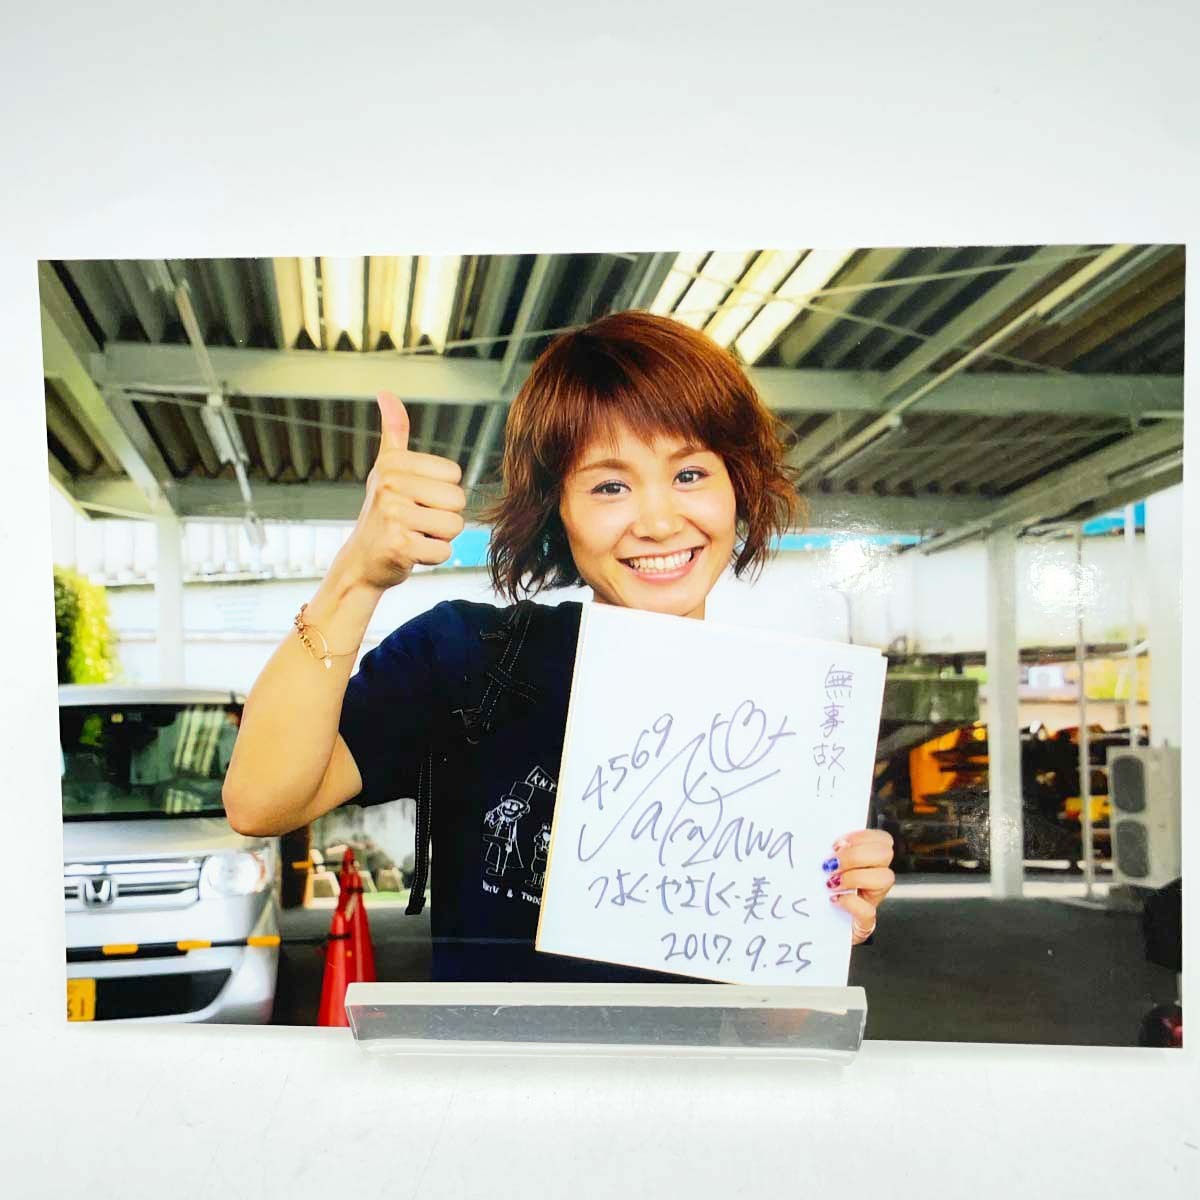 無事故!!
4569
つよく・やさしく・美しく
2017.9.25
KNT